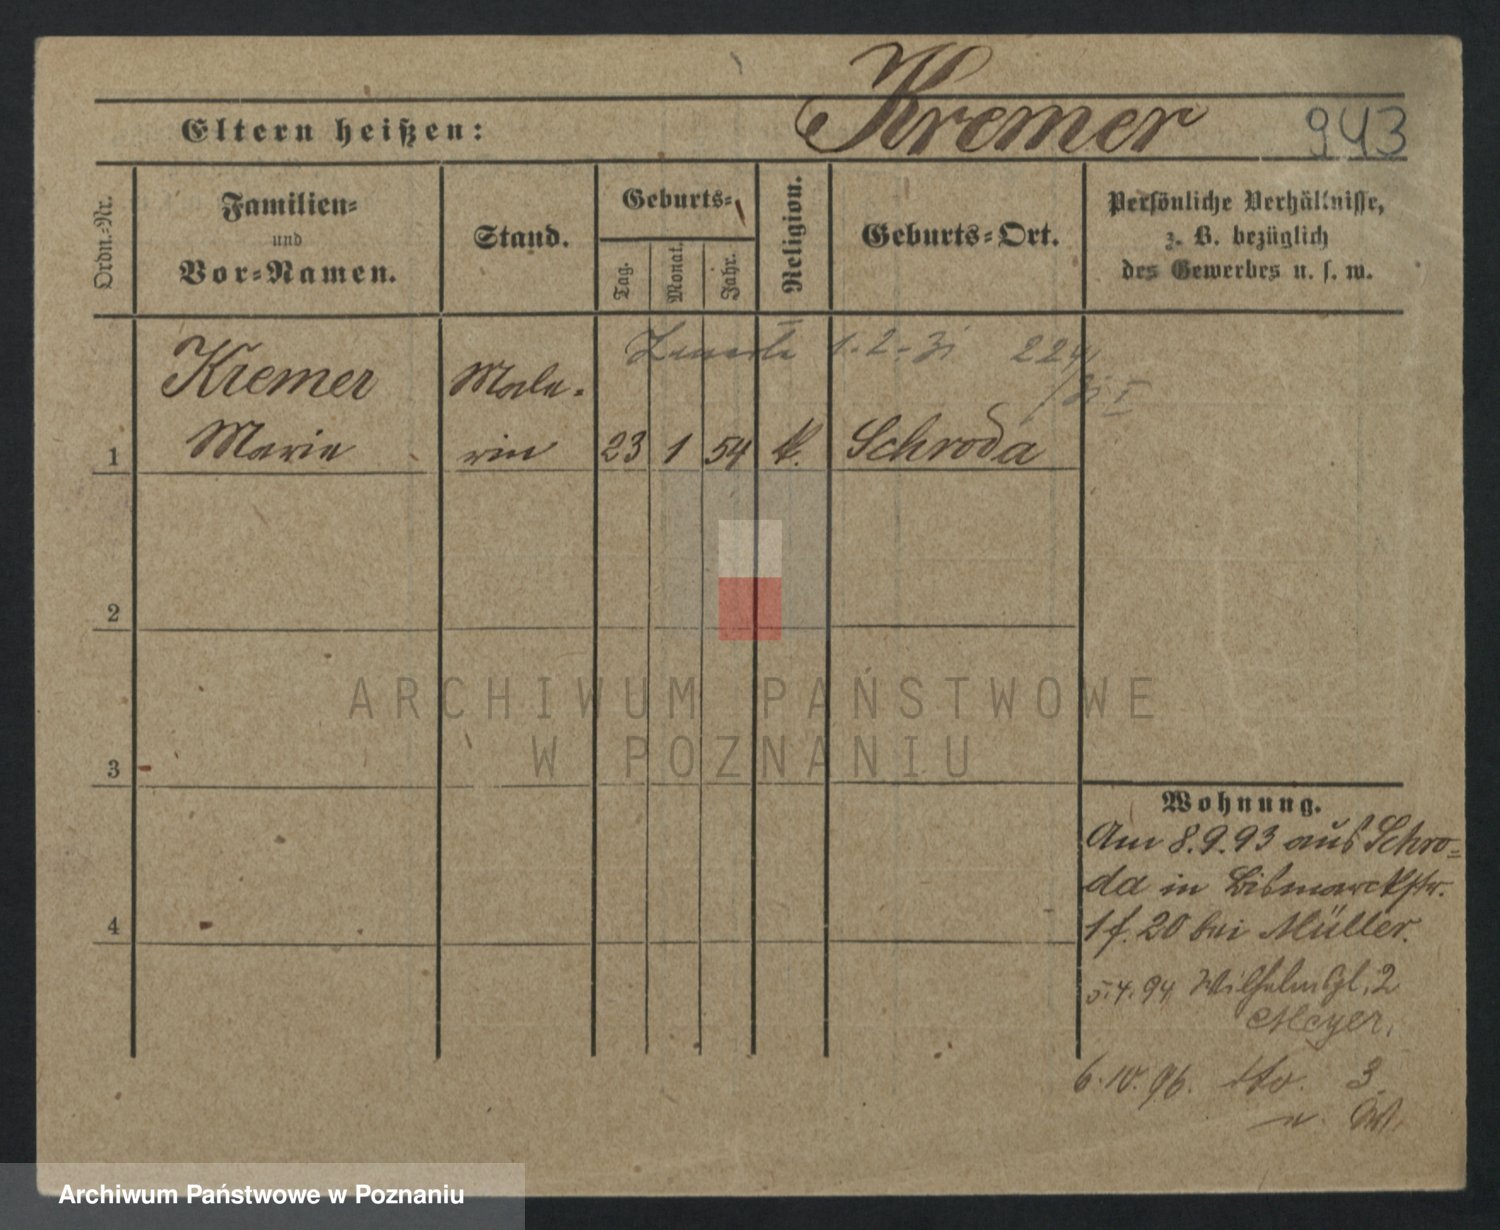 Kremer
943
Eltern heißen:
Ordn.-Nr.
Familien-
und
Vor-Namen.
Stand.
Geburts-
Tag.
Monat.
Jahr.
Religion.
Geburts-Ort.
Persönliche Verhältnisse,
z. B. bezüglich
des Gewerbes u. s. w.
1·2·31 224
Kremer
Male-
1
Marie
rin
23
1
54
k.
Schroda
2
3
4
ARCHIWUM PAŃSTWOWE
W POZNANIU
Wohnung.
Am 8.9.93 aus Schro-
da in Bismarckstr.
1 f. 20 bei Müller.
5.4.94 Wilhelmspl. 2
Meyer.
6.10.96. dto. 3
Archiwum Państwowe w Poznaniu